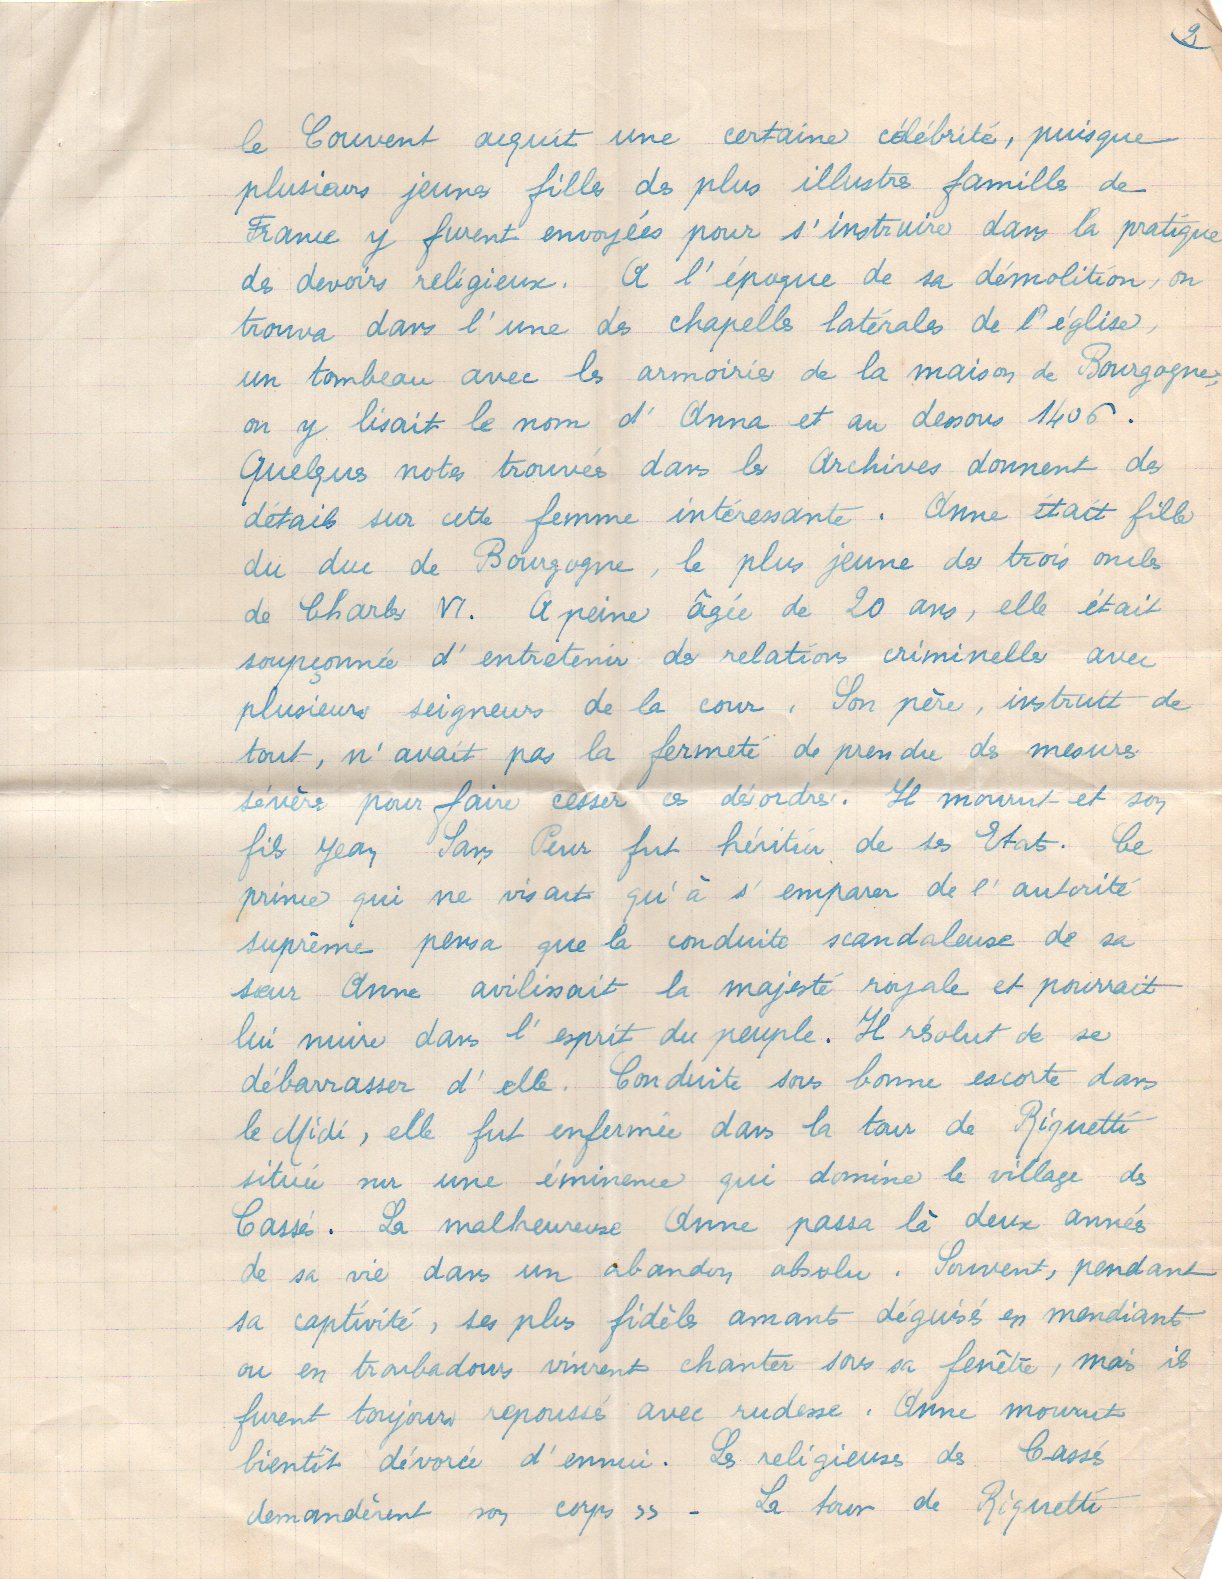 2
le Couvent acquit une certaine célébrité, puisque
plusieurs jeunes filles des plus illustres familles de
France y furent envoyées pour s'instruire dans la pratique
des devoirs religieux. A l'époque de sa démolition, on
trouva dans l'une des chapelles latérales de l'église,
un tombeau avec les armoiries de la maison de Bourgogne,
on y lisait le nom d'Anna et au dessous 1406.
Quelques notes trouvées dans les Archives donnent des
détails sur cette femme intéressante. Anne était fille
du duc de Bourgogne, le plus jeune des trois oncles
de Charles VI. A peine âgée de 20 ans, elle était
soupçonnée d'entretenir des relations criminelles avec
plusieurs seigneurs de la cour. Son père, instruit de
tout, n'avait pas la fermeté de prendre des mesures
sévères pour faire cesser ces désordres. Il mourut et son
fils Jean Sans Peur fut héritier de ses Etats. Ce
prince qui ne visait qu'à s'emparer de l'autorité
suprême pensa que la conduite scandaleuse de sa
sœur Anne avilissait la majesté royale et pourrait
lui nuire dans l'esprit du peuple. Il résolut de se
débarrasser d'elle. Conduite sous bonne escorte dans
le Midi, elle fut enfermée dans la tour de Riguetti
située sur une éminence qui domine le village des
Cassés. La malheureuse Anne passa là deux années
de sa vie dans un abandon absolu. Souvent, pendant
sa captivité, ses plus fidèles amants déguisés en mendiants
ou en troubadours vinrent chanter sous sa fenêtre, mais ils
furent toujours repoussés avec rudesse. Anne mourut
bientôt dévorée d'ennui. Les religieuses des Cassés
demandèrent son corps » - La tour de Riguetti